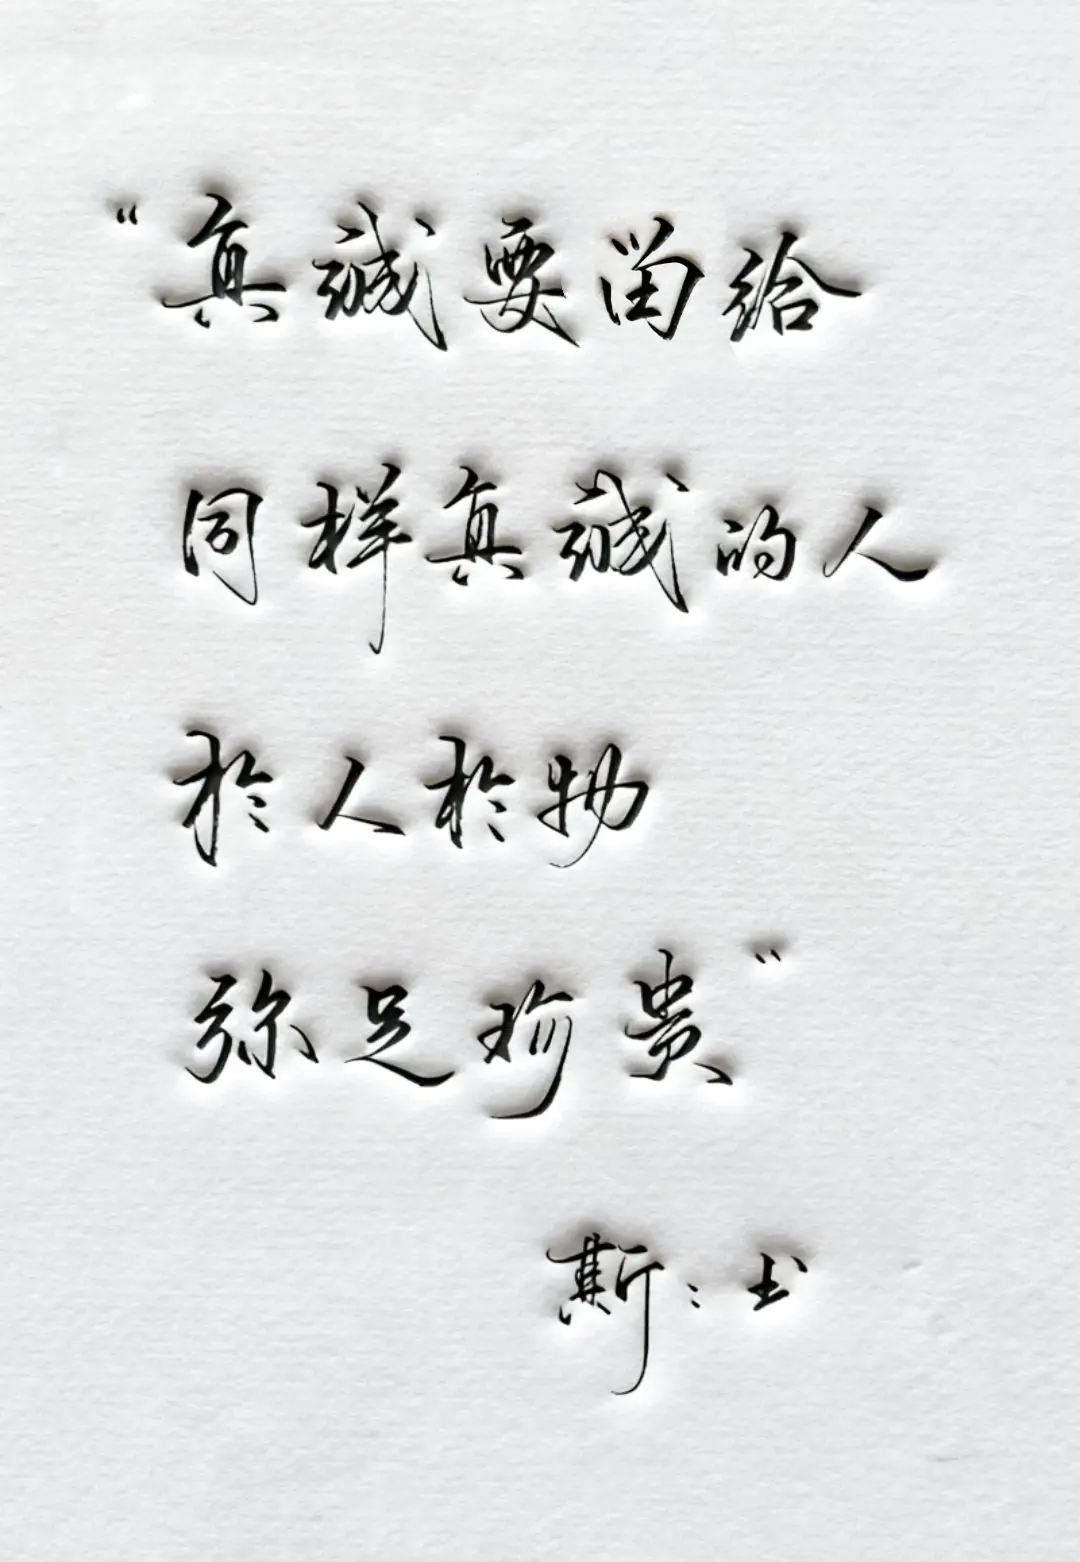 “真诚要留给
同样真诚的人
於人於物
弥足珍贵”
斯：书